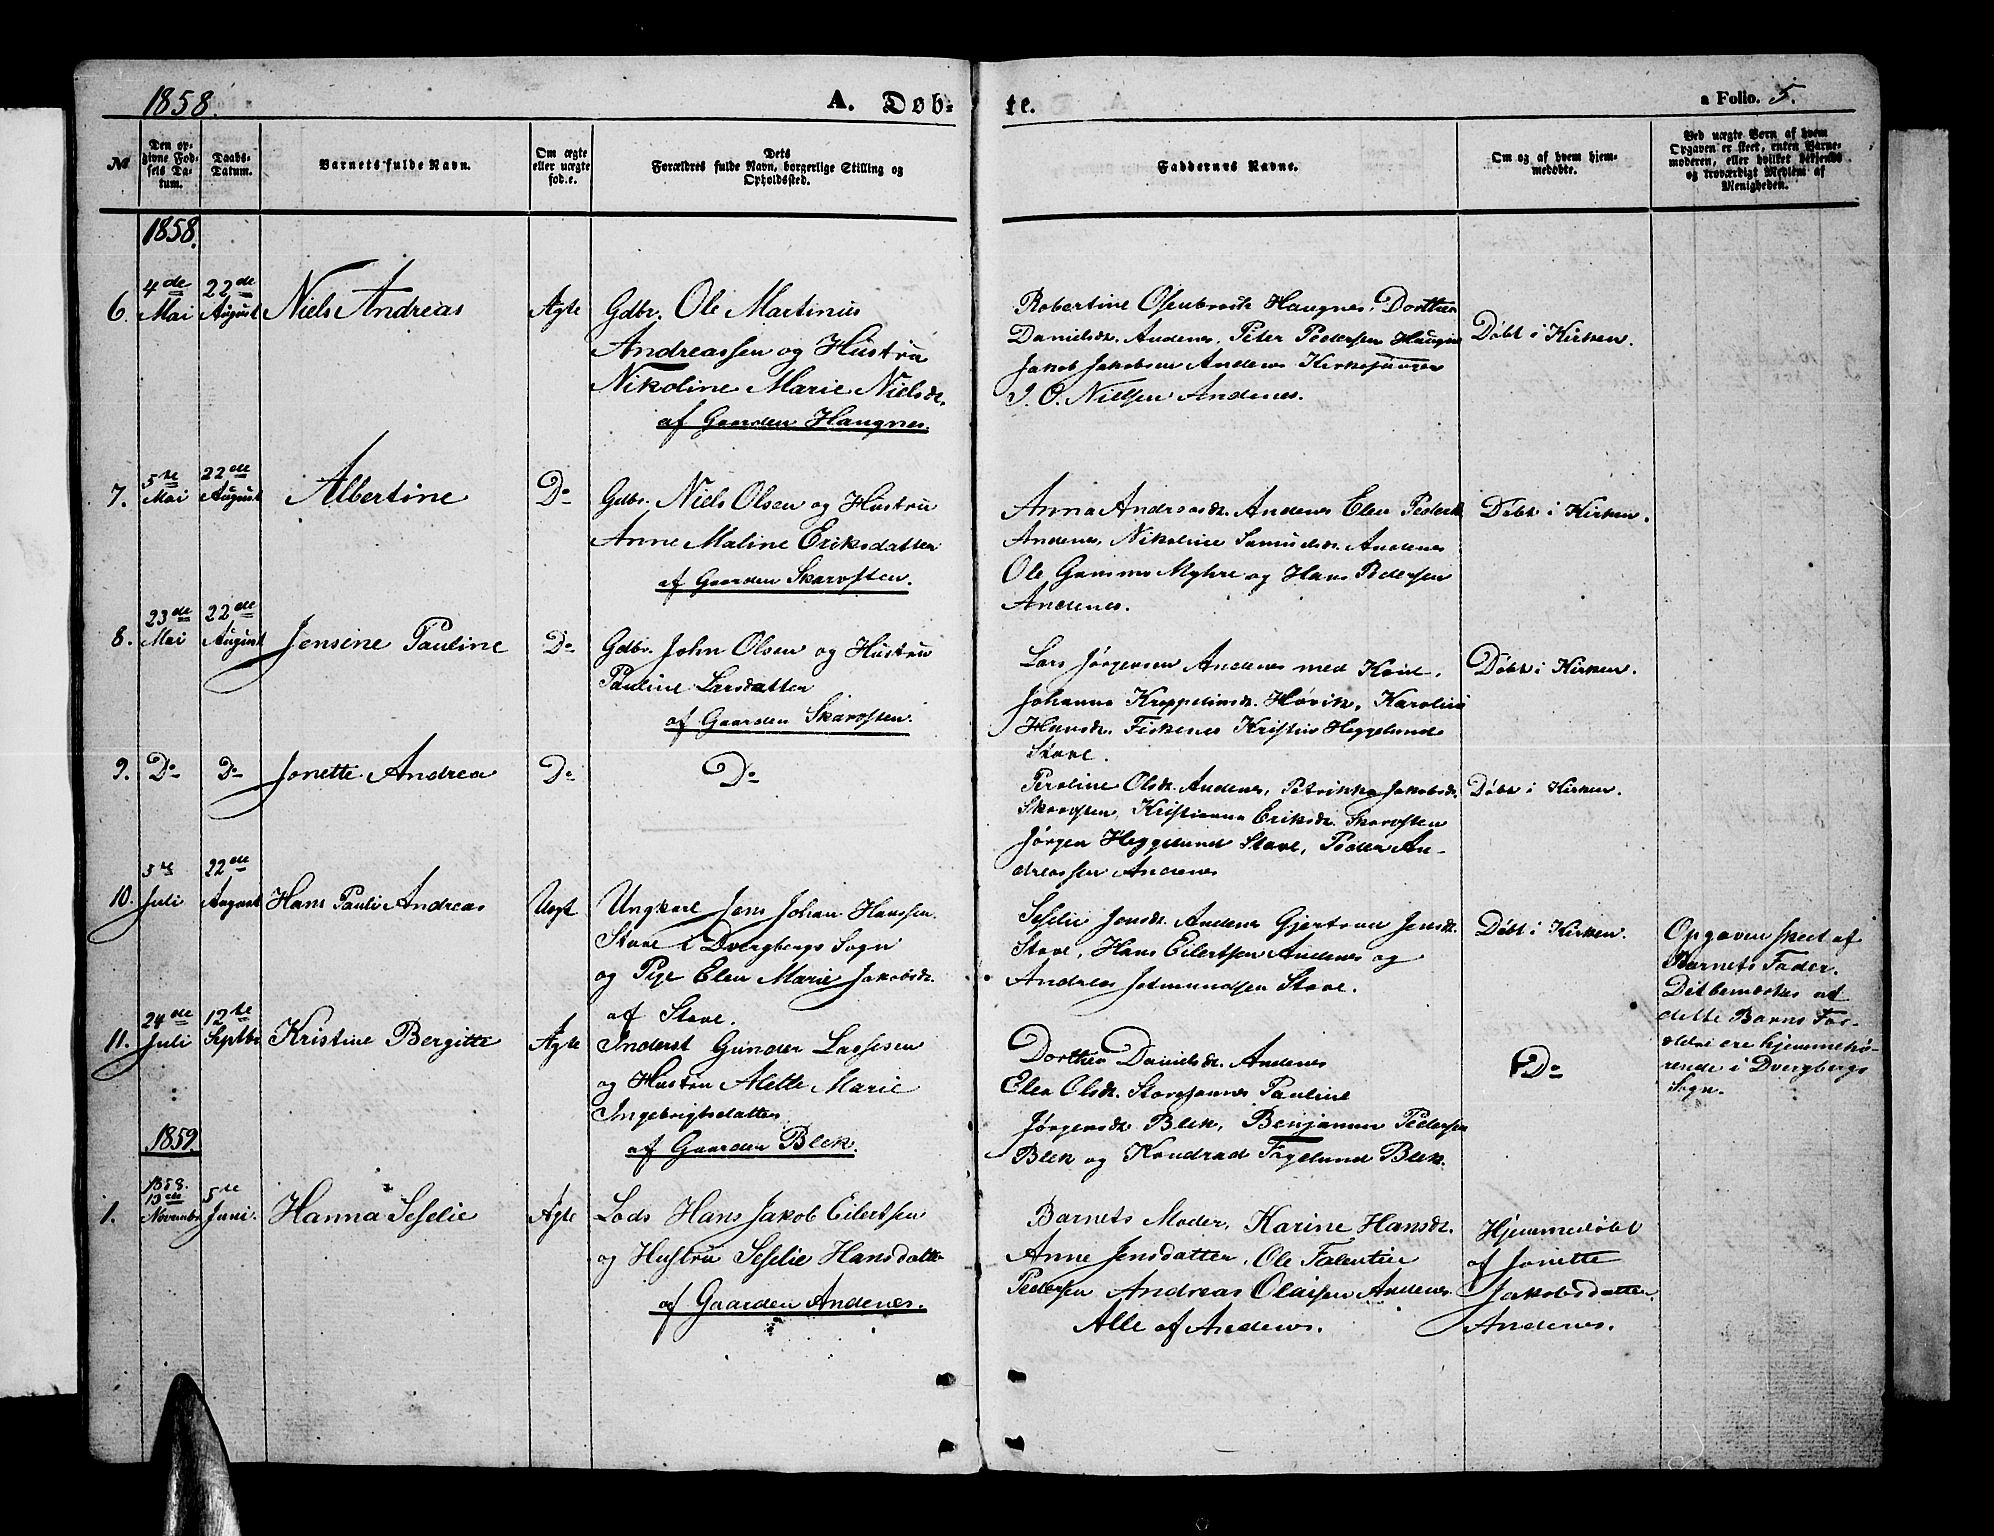 1858.
A. Døb-
te.
a Folio. 5.
№
Den op-
givne Fød-
sels Da-
tum.
Daabs-
Datum.
Barnets fulde Navn.
Om ægte
eller uægte
fød.e.
Dets
Forældres fulde Navn, borgerlige Stilling og
Opholdssted.
Faddernes Navne.
Om og af hvem hjem-
medøbte.
Ved uægte Børn af hvem
Opgaven er skeet, enten Barne-
moderen, eller hvilket bekjendt
og troværdigt Medlem af
Menigheden.
1858.
6.
4de
Mai
22de
August
Niels Andreas
Ægte
Gdbr. Ole Martinus
Andreassen og Hustru
Nikoline Marie Nielsdt.
af Gaarden Haugnes.
Robertine Osenbrock Haugnes, Dorthea
Danielsdt. Andenes, Peter Pedersen Haugnes
Jakob Jakobsen Andenes Kirkesanger
J. O. Nielsen Andenes.
Døbt i Kirken.
7.
5te
Mai
22de
August
Albertine
Do
Gdbr. Niels Olsen og Hustru
Anne Maline Eriksdatter
af Gaarden Skarvsten.
Anna Andreasdt. Andenes Elen Pedersdt.
Andenes, Nikoline Samuelsdt. Andenes
Ole Gamsmo Myhre og Hans Pedersen
Andenes.
Døbt i Kirken.
8.
23de
Mai
22de
August
Jensine Pauline
Do
Gdbr. John Olsen og Hustru
Pauline Larsdatter
af Gaarden Skarvsten.
Lars Jørgensen Andenes med Kone,
Johanna Kreppelinsdt. Høvik, Karoline
Hansdt. Fiskenes Kristine Heggelund
Stave.
Døbt i Kirken.
9.
Do
Do
Jonette Andrea
Do
Do
Peroline Olsdt. Andenes, Petrikke Jakobsdt.
Skarvsten, Kristianna Eriksdt. Skarvsten
Jørgen Heggelund Stave, Peder An-
dreassen Andenes
Døbt i Kirken.
10.
5te
Juli
22de
August
Hans Pauli Andreas
Uægt
Ungkarl Jens Johan Hanssen
Stave i Dverbergs Sogn
og Pige Elen Marie Jakobsdt.
af Stave.
Seselie Jensdt. Andenes Gjertrun Jensdt.
Stave, Hans Eilertsen Andenes og
Andreas Jetmundsen Stave.
Døbt i Kirken.
Opgaven skeet af
Barnets Fader.
Det bemærkes at
dette Barns For-
ældre ere hjemmehø-
rende i Dverbergs
Sogn.
11.
24de
Juli
12te
Septbr
Kristine Bergitte
Ægte
Inderst Gunder Lassesen
og Hustru Alette Marie
Ingebrigtsdatter
af Gaarden Blek.
Dorthea Danielsdt. Andenes
Elen Olsdt. Storejannes Pauline
Jørgensdt. Blek, Benjamin Pedersen
Blek og Kondrad Fagelund Blek.
Do
1859.
1.
1858.
13de
Novembr
5te
Juni.
Hanna Seselie
Ægte
Lods Hans Jakob Eilertsen
og Hustru Seselie Hansdatter
af Gaarden Andenes.
Barnets Moder, Karine Hansdt.
Anne Jensdatter, Ole Falentin
Pedersen Andreas Olaisen Andenes
Alle af Andenes.
Hjemmedøbt
af Jonette
Jakobsdatter
Andenes.